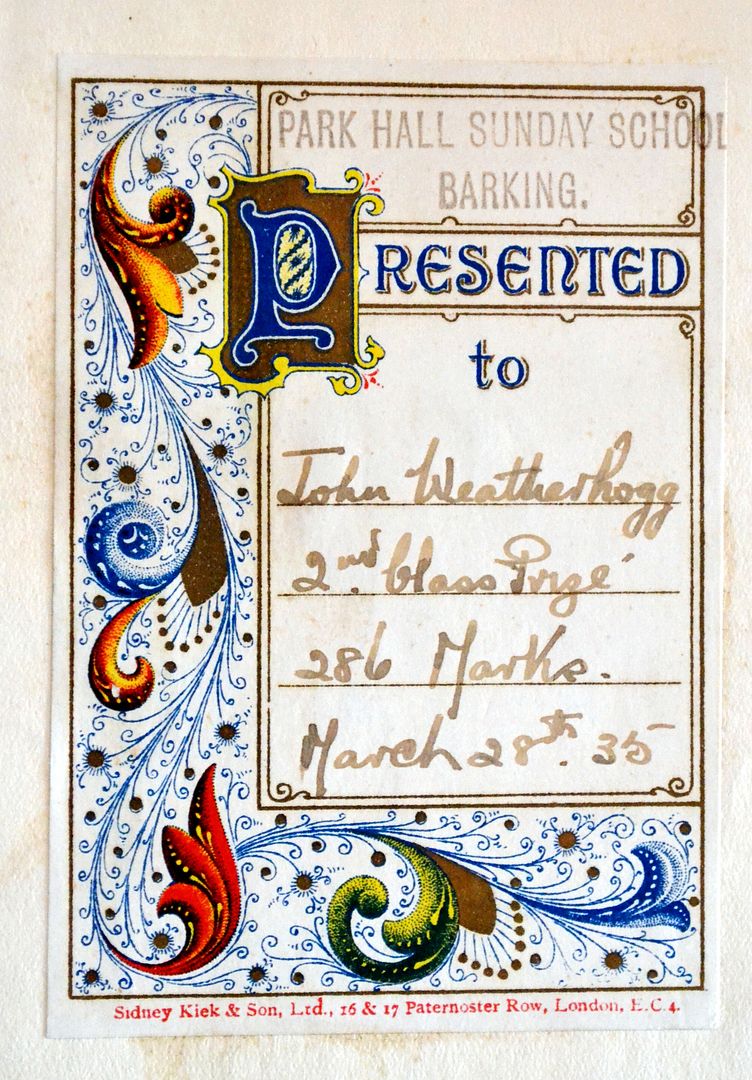 PARK HALL SUNDAY SCHOOL
BARKING.
PRESENTED
to
John Weatherhogg
2nd. Class Prize
286 Marks.
March 28th. 35
Sidney Kiek & Son, Ltd., 16 & 17 Paternoster Row, London, E.C.4.